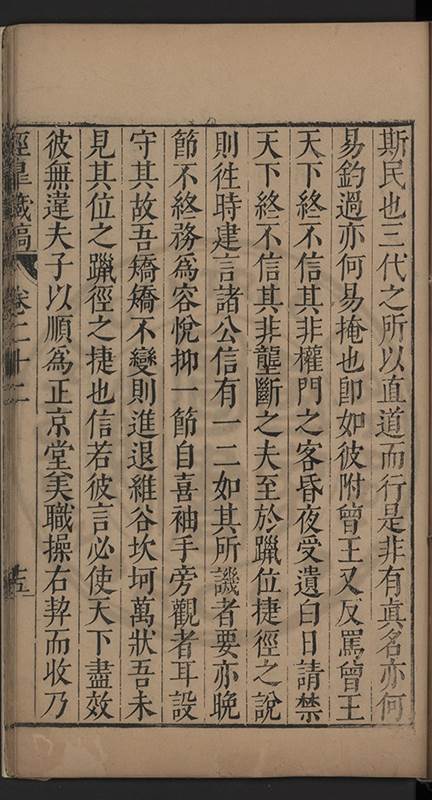 斯民也三代之所以直道而行是非有真名亦何
易釣過亦何易掩也卽如彼附曾王又反罵曾王
天下終不信其非權門之客昏夜受遺白日請禁
天下終不信其非壟斷之夫至於躐位捷徑之說
則往時建言諸公信有一二如其所譏者要亦晚
節不終務爲容悅抑一節自喜袖手旁觀者耳設
守其故吾矯矯不變則進退維谷坎坷萬狀吾未
見其位之躐徑之捷也信若彼言必使天下盡效
彼無違夫子以順爲正京堂美職操右契而收乃
經臯藏稿 卷二十二 五